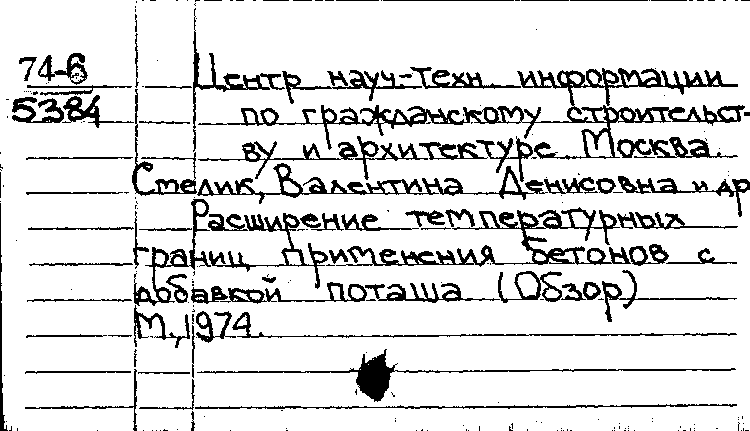 74-6
5384
Центр науч.-техн. информации
по гражданскому строительст-
ву и архитектуре. Москва.
Смелик, Валентина Денисовна и др
Расширение температурных
границ применения бетонов с
добавкой поташа. (Обзор)
М., 1974.